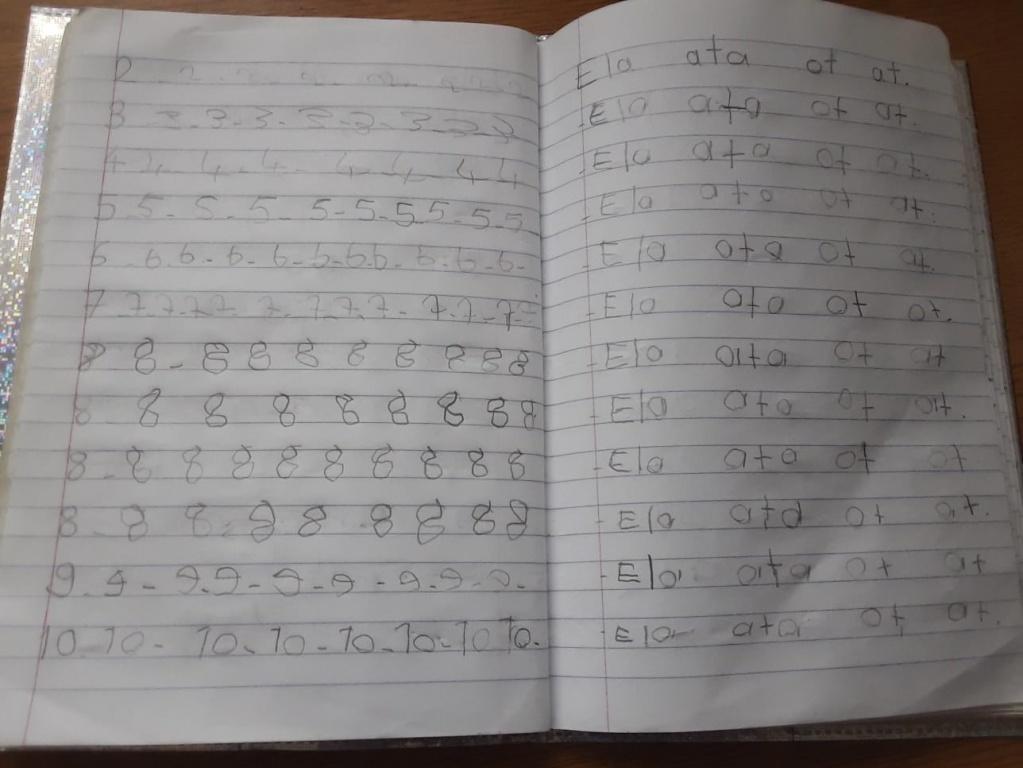 2 2 2 2 2 2 2 2
3 3 - 3 - 3 - 3 - 3 - 3 - 3 3
4 4 - 4 - 4 - 4 - 4 - 4 4
5 5 - 5 - 5 - 5 - 5 - 5 5 - 5 5
6 6 6 - 6 - 6 - 6 - 6 6 - 6 - 6 - 6 -
7 7 - 7 - 7 7 - 7 - 7 - 7 - 7 - 7 - 7 - 7 -
8 8 - 8 8 8 8 8 8 8 8
8 8 8 8 8 8 8 8 8
8 - 8 8 8 8 8 8 8 8 8
8 - 8 8 - 8 8 - 8 8 8 8
9 - 9 - 9 - 9 - 9 - 9 - 9 - 9 - 9 -
10 - 10 - 10 - 10 - 10 - 10 - 10 10 -
Ela ata ot at.
- Ela ata ot at.
- Ela ata ot at.
- Ela ata ot at.
- Ela ata ot at.
- Ela ata ot ot.
- Ela ata ot at
- Ela ata ot at.
- Ela ata ot ot
- Ela ata ot at.
- Ela ata ot at
- Ela ata ot at.